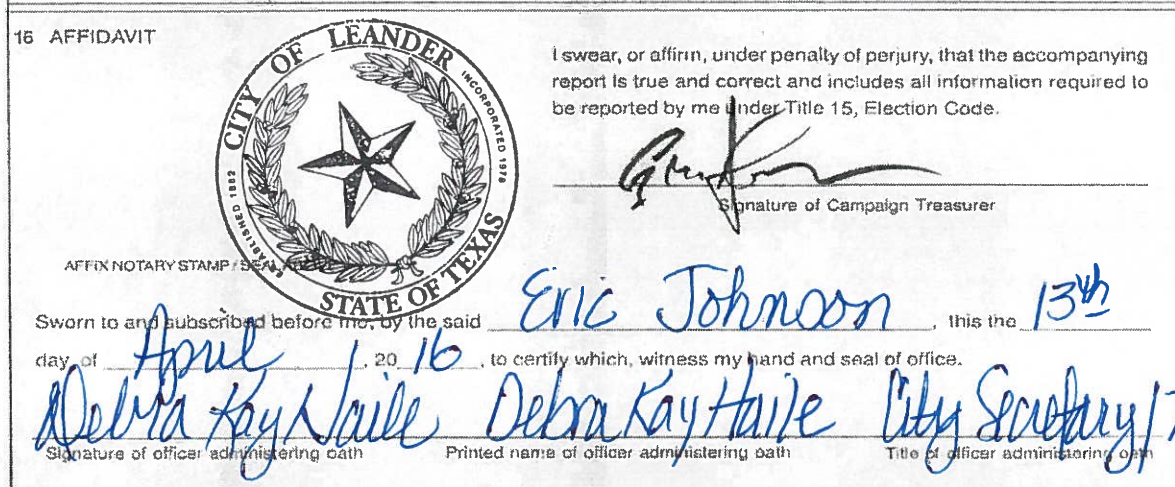 16 AFFIDAVIT
CITY OF LEANDER
INCORPORATED 1978
ESTABLISHED 1882
STATE OF TEXAS
I swear, or affirm, under penalty of perjury, that the accompanying
report is true and correct and includes all information required to
be reported by me under Title 15, Election Code.
Signature of Campaign Treasurer
AFFIX NOTARY STAMP / SEAL ABOVE
Sworn to and subscribed before me, by the said Eric Johnson, this the 13th
day of April, 20 16, to certify which, witness my hand and seal of office.
Debra Kay Haile Debra Kay Haile City Secretary/
Signature of officer administering oath Printed name of officer administering oath Title of officer administering oath